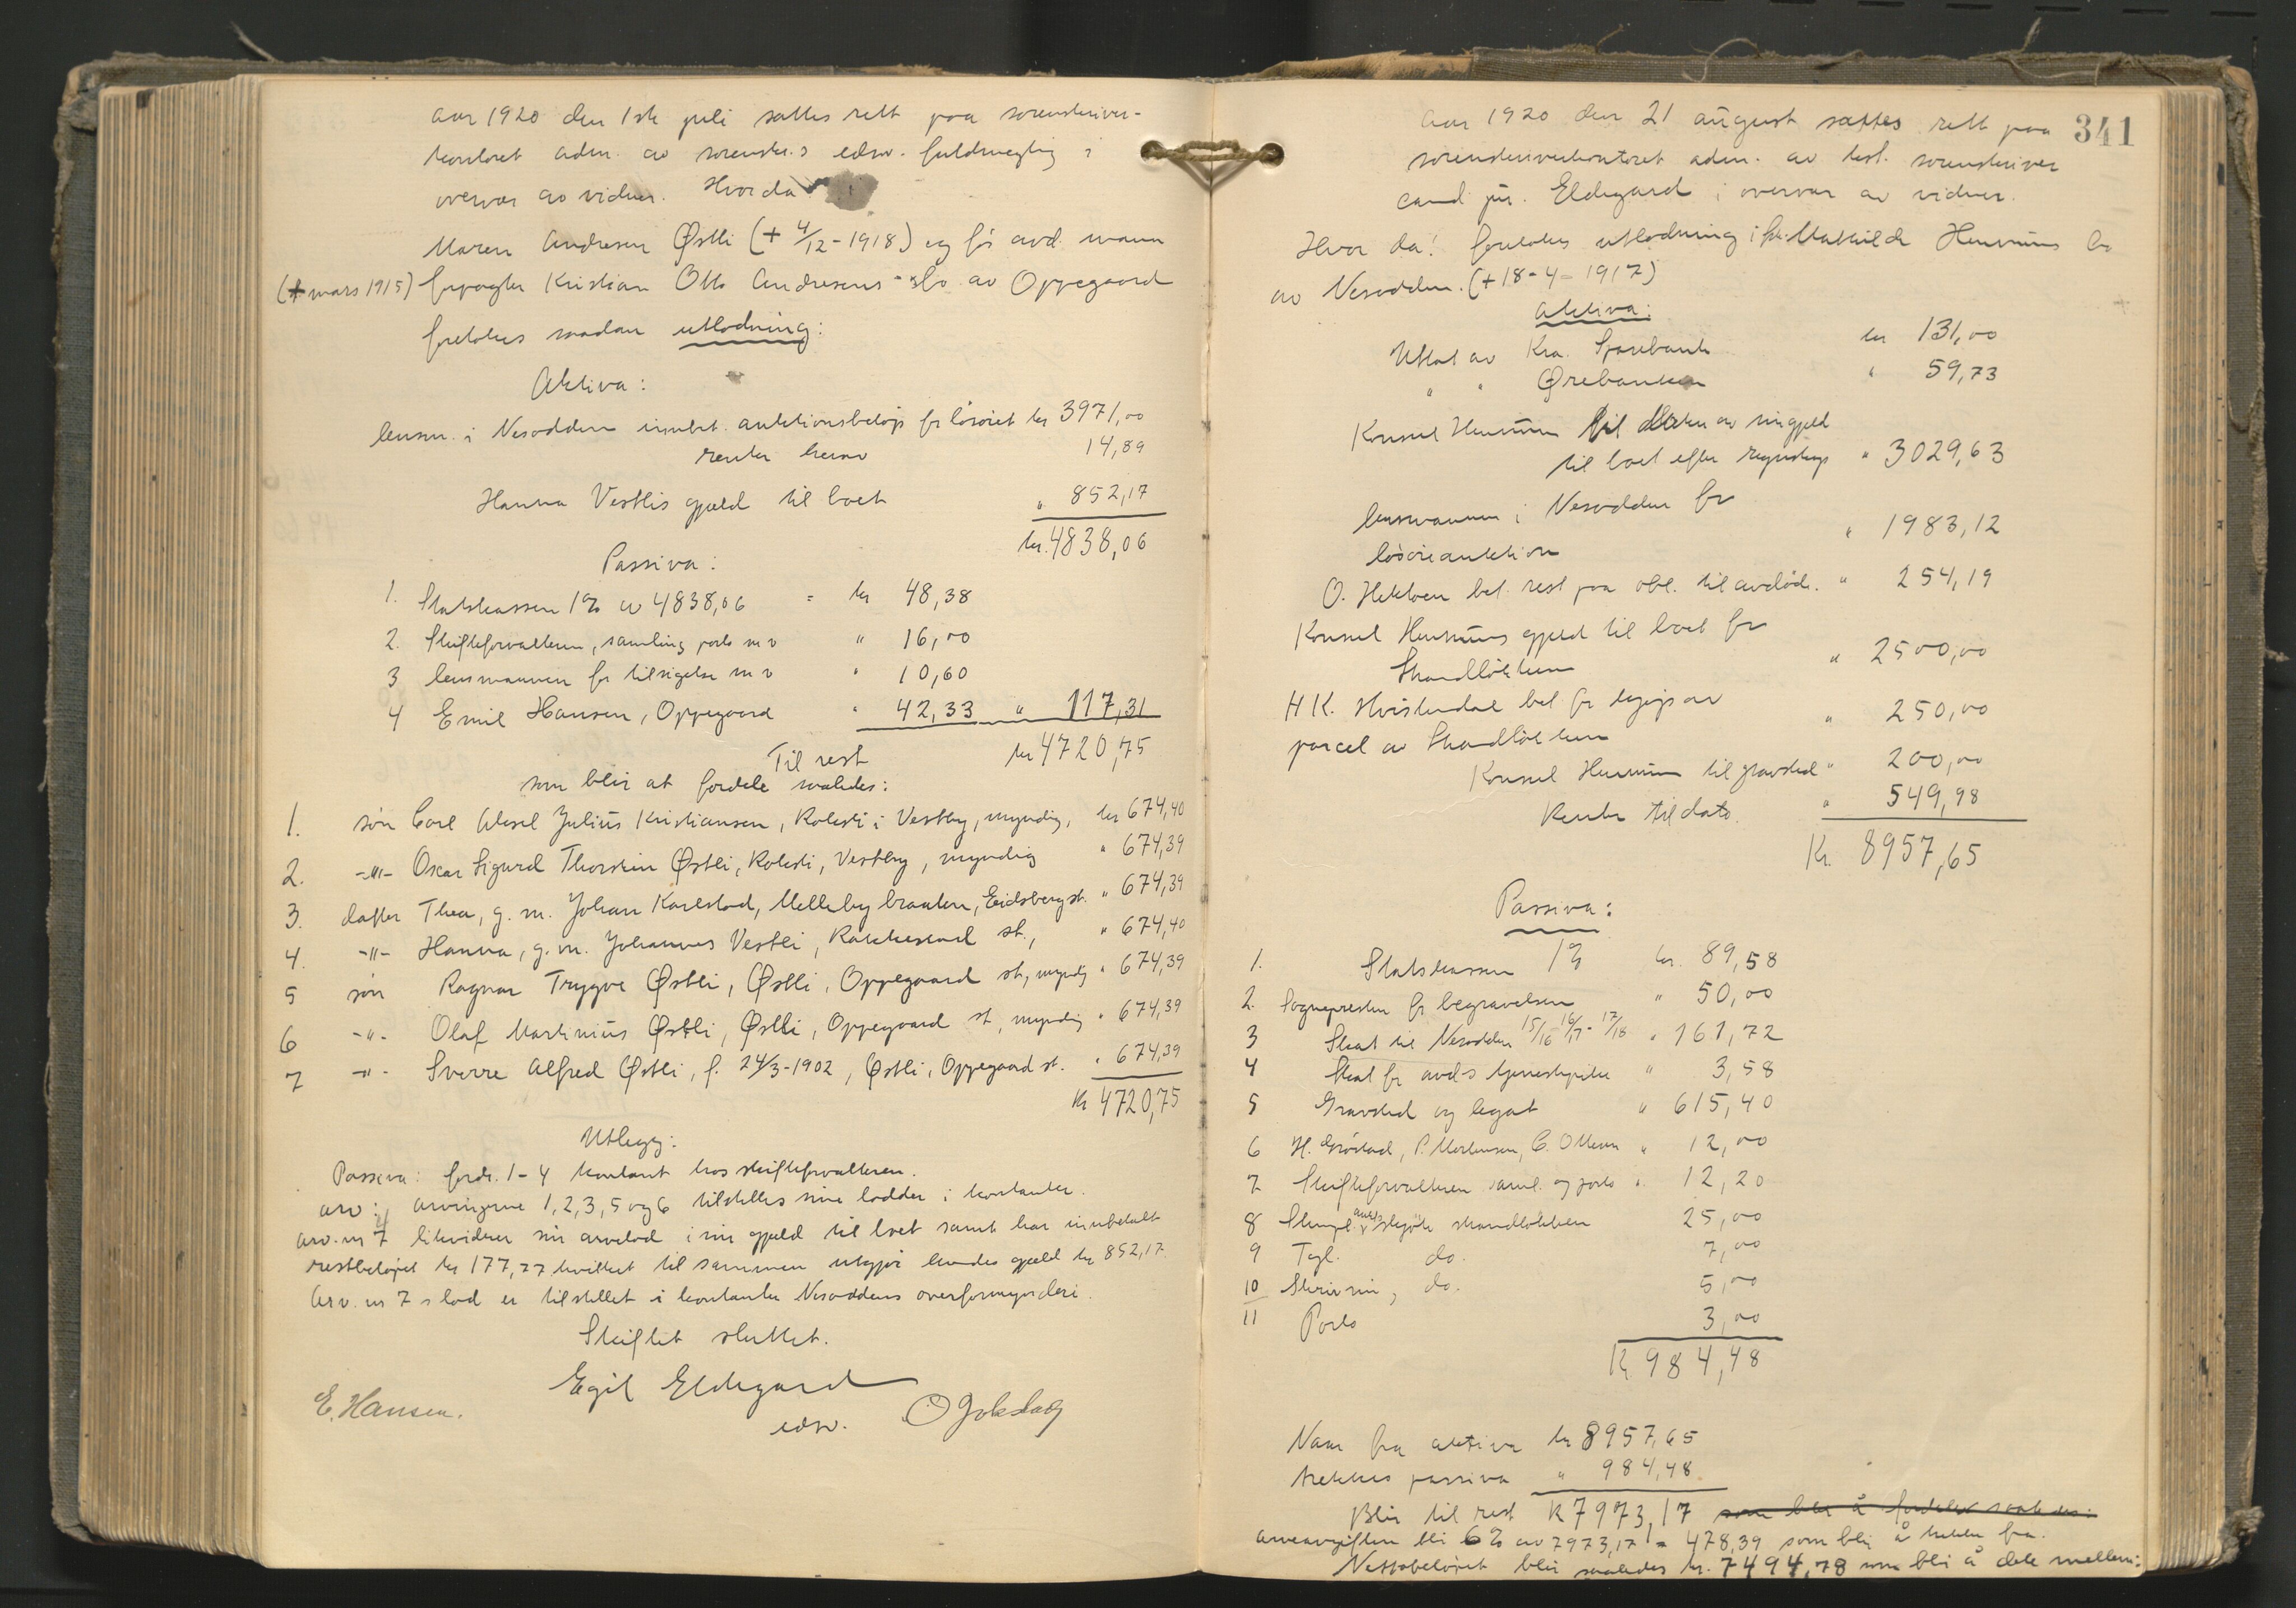 Aar 1920 den 1ste juli sattes rett paa sorenskriver-
kontoret adm. av sorenskr.s edsv. fuldmægtig i
overvær av vidner. Hvorda
Maren Andresen Østli (+ 4/12-1918) og før avd. mann
(+ mars 1915) forpagter Kristian Otto Andresens sbo av Oppegaard
foretokes saadan utlodning:
Aktiva:
lensm. i Nesodden innbet. auktionsbeløp for løsøret kr 3971,00
renter herav 14,89
Hanna Vestlis gjæld til boet " 852,17
kr. 4838,06
Passiva:
1. Statskassen 1% av 4838,06 = kr 48,38
2. Skifteforvalteren, samling porto m v " 16,00
3 lensmannen for tilsigelse m v " 10,60
4 Emil Hansen, Oppegaard " 42,33 " 117,31
Til rest kr 4720,75
som blir at fordele saaledes:
1. søn Carl Aksel Julius Kristiansen, Kolesti i Vestby, myndig, kr 674,40
2. -"- Oskar Sigurd Thorstein Østli, Kolesti, Vestby, myndig " 674,39
3. datter Thea, g. m. Johan Karlstad, Mellebybraaten, Eidsberg st. " 674,39
4. -"- Hanna, g. m. Johannes Vestli, Rakkestad st., " 674,40
5 søn Ragnar Trygve Østli, Østli, Oppegaard st, myndig " 674,39
6 -"- Olaf Martinius Østli, Østli, Oppegaard st, myndig " 674,39
7 -"- Sverre Alfred Østli, f. 24/3-1902, Østli, Oppegaard st. " 674,39
Kr 4720,75
Utlegg:
Passiva: fordr. 1-4 kontant hos skifteforvalteren.
arv: arvingerne 1, 2, 3, 5 og 6 tilstilles sine lodder i kontanter.
arv. nr 7 likviderer sin arvelod i sin gjæld til boet samt har innbetalt
restbeløpet kr 177,77 hvilket til sammen utgjør hendes gjæld kr 852,17.
Arv. nr 7 s lod er tilstillet i kontanter Nesoddens overformynderi.
Skiftet sluttet.
Egil Eldegard
edsv.
E. Hansen.
341
Aar 1920 den 21 august sattes rett paa
sorenskriverkontoret adm. av kst. sorenskriver
cand jur. Eldegard i overvær av vidner.
Hvor da! foretokes utlodning i frk. Mathilde Henums bo
av Nesodden. (+ 18-4-1917)
Aktiva:
Uttat av Kra. Sparebank kr 131,00
" " Ørebanken " 59,73
Konsul Henum av sin gjæld
til boet efter regnskap " 3029,63
lensmannen i Nesodden for
løsøreauktion " 1983,12
O. Hekloen bet. rest paa obl. til avdøde. " 254,19
Konsul Henums gjæld til boet for
Strandløkken " 2500,00
H K. Hvistendal bet for
parcel av Strandløkken " 250,00
Konsul Henum til gravsted " 200,00
Renter til dato. " 549,98
Kr. 8957,65
Passiva:
1. Statskassen 1% kr. 89,58
2. Sognepresten for begravelsen " 50,00
3 Skat til Nesodden 15/16 16/17 - 17/18 " 161,72
4 Skat for avd.s tjenestepike " 3,58
5 Gravsted og legat " 615,40
6 H. Grøstad, P. Mortensen, C. Ottesen " 12,00
7 Skifteforvalteren saml. og porto " 12,20
8 Stempl. aukts skjøte strandløkken 25,00
9 Tegl. do. 7,00
10 Skrivning, do. 5,00
11 Porto 3,00
Kr 984,48
Naar fra aktiva kr 8957,65
trekkes passiva " 984,48
Blir til rest kr 7973,17 som blir å fordele saaledes:
arveavgiften bli 6% av 7973,17 = 478,39 som bli å trekke fra.
Nettobeløpet blir saaledes kr. 7494,78 som bli å dele mellem: